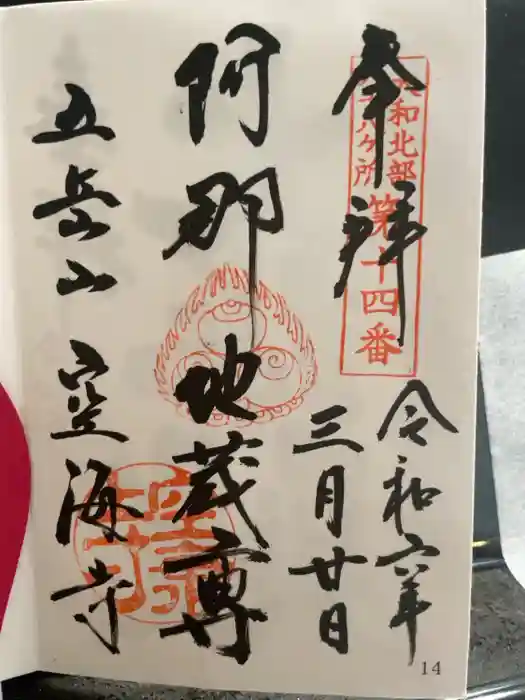 奉拝
大和北部
八十八ヶ所
第十四番
令和六年
三月廿日
阿那地蔵尊
五岳山 空海寺
14